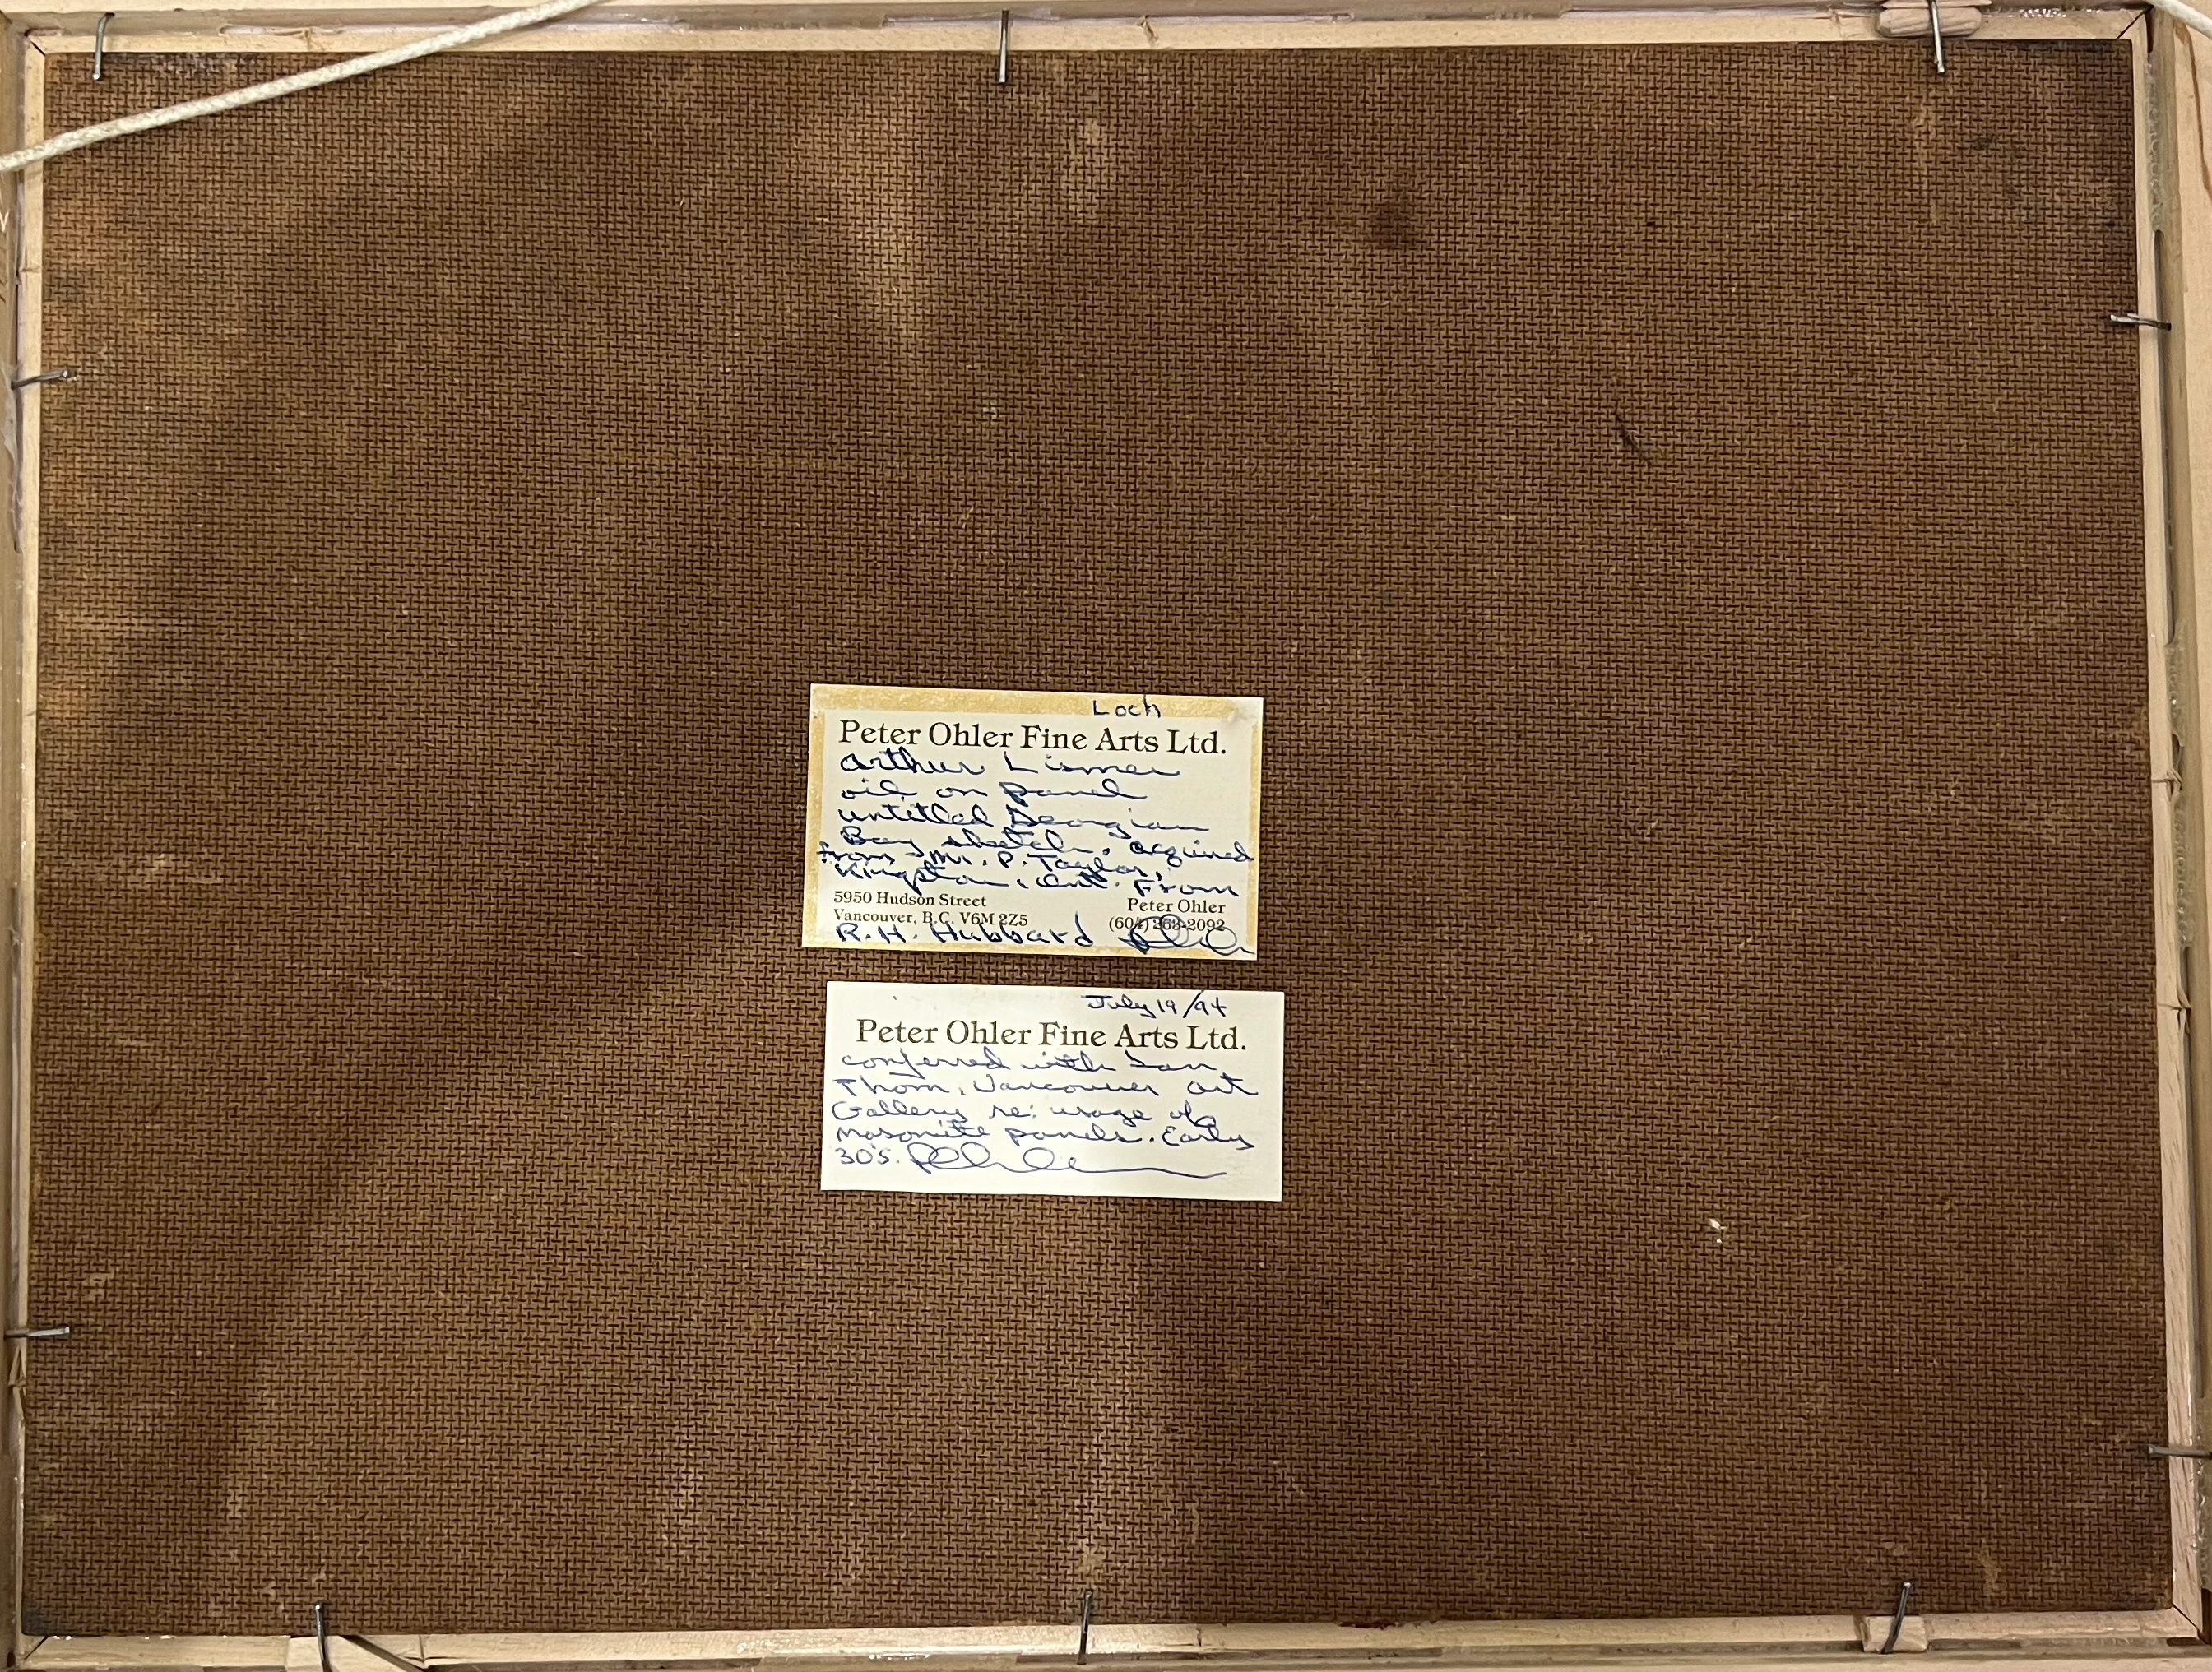 Loch
Peter Ohler Fine Arts Ltd.
Arthur Lismer
oil on panel
untitled Georgian
Bay sketch. acquired
from Mr. P. Taylor,
Kingston, Ont. From
5950 Hudson Street
Peter Ohler
Vancouver, B.C. V6M 2Z5
(604) 263-2092
R.H. Hubbard
July 19/94
Peter Ohler Fine Arts Ltd.
conferred with Ian
Thom, Vancouver Art
Gallery re: usage of
masonite panels. Early
30's. P Ohler